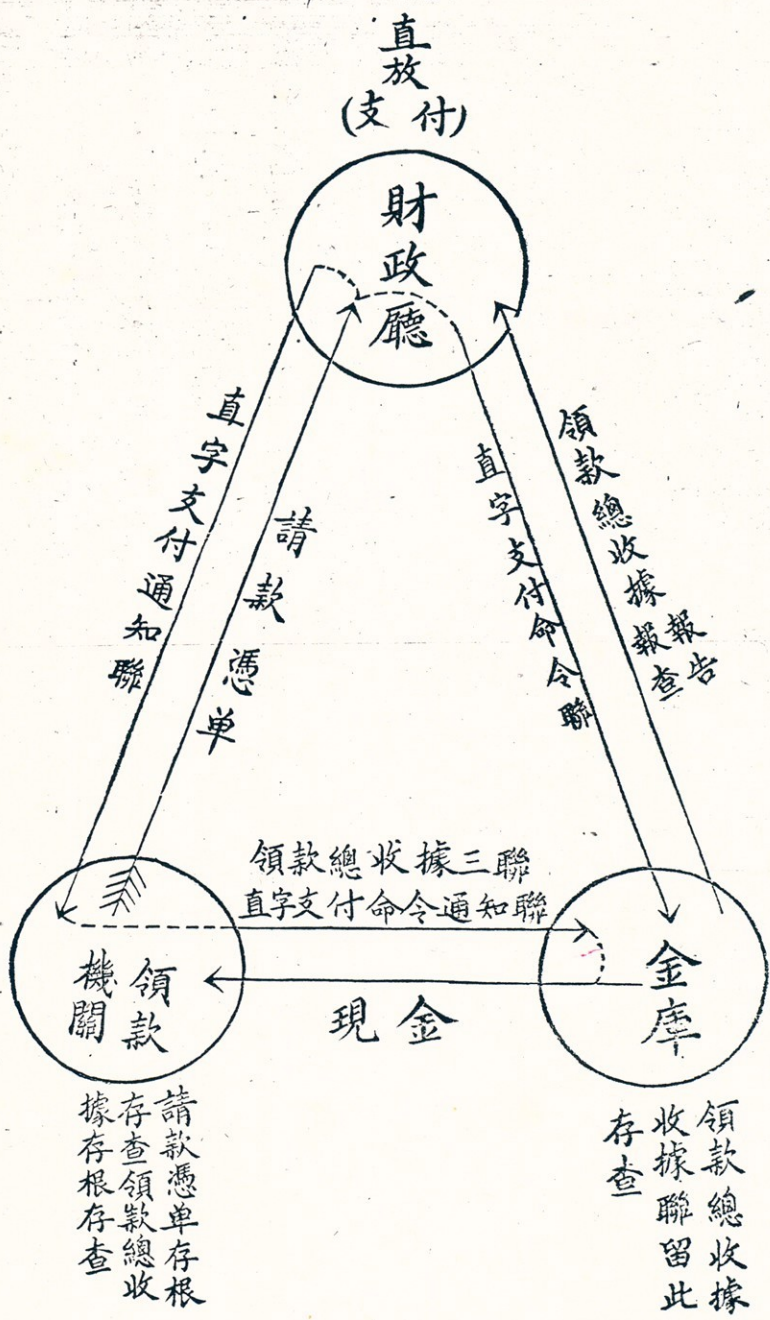 直放
(支付)
財政廳
直字支付通知聯
請款憑单
直字支付命令聯
領款總收據報查
報告
領款總收據三聯
直字支付命令通知聯
現金
領款
機關
金庫
請款憑单存根
存查領款總收
據存根存查
領款總收據
收據聯留此
存查